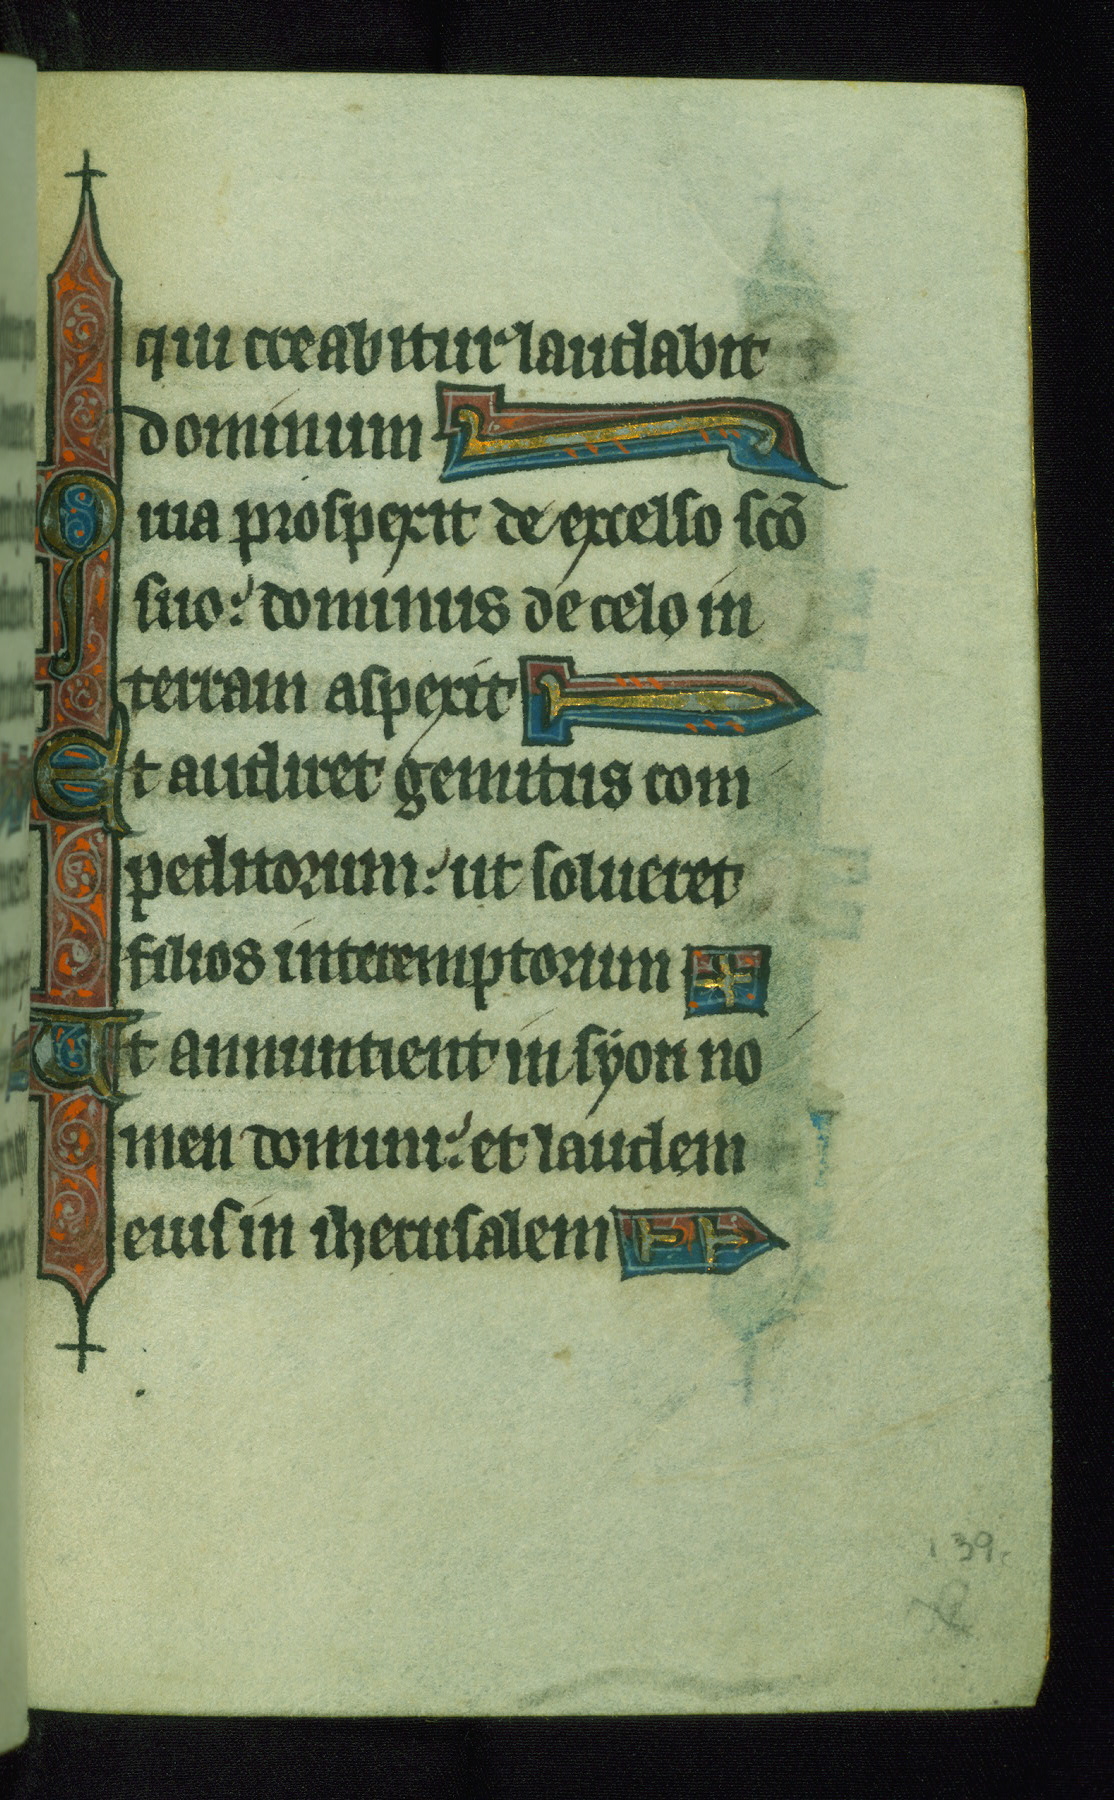 qui creabitur laudabit
dominum
Quia prosperit de excelso scō
suo: dominus de celo in
terram asperit
Et audiret gemitus com
peditorum: ut solueret
filios interemptorum
Ut annuntient in syon no
men domini: et laudem
euis in iherusalem
139